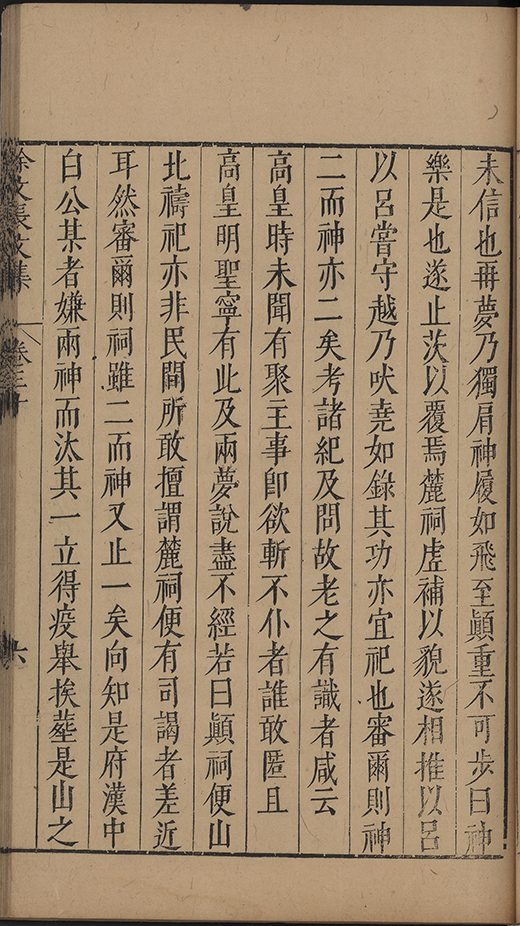 未信也再夢乃獨肩神履如飛至顚重不可步曰神
樂是也遂止茨以覆焉麓祠虛補以貌遂相推以呂
以呂嘗守越乃吠堯如錄其功亦宜祀也審爾則神
二而神亦二矣考諸紀及問故老之有識者咸云
高皇時未聞有聚王事卽欲斬不仆者誰敢匿且
高皇明聖寧有此及兩夢說盡不經若曰顚祠便山
北禱祀亦非民間所敢擅謂麓祠便有司謁者差近
耳然審爾則祠雖二而神又止一矣向知是府漢中
白公某者嫌兩神而汰其一立得疫舉挨塟是山之
徐文長文集 卷三十 六